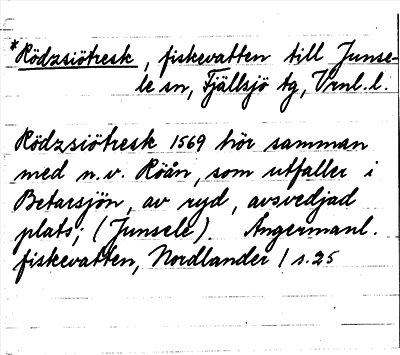 *Rödzsiötresk, fiskevatten till Junse-
le sn, Fjällsjö tg, Vrnl. l.
Rödzsiötresk 1569 hör samman
med n. v. Röån, som utfaller i
Betarsjön, av ryd, avsvedjad
plats; (Junsele). Ångermanl.
fiskevatten, Nordlander / s. 25